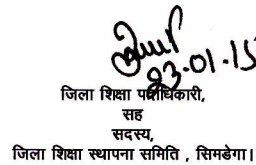 23.01.15
जिला शिक्षा पदाधिकारी,
सह
सदस्य,
जिला शिक्षा स्थापना समिति , सिमडेगा।